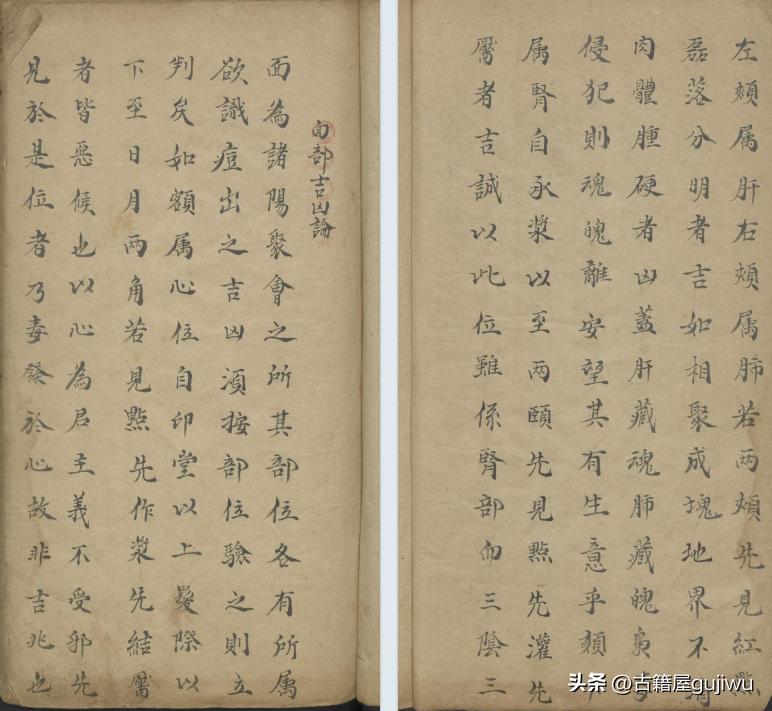 面部吉凶論
面為諸陽聚會之所其部位各有所属
欲識痘出之吉凶須按部位驗之則立
判矣如額属心位自印堂以上髮際以
下至日月兩角若見點先作漿先結靨
者皆惡候也以心為君主義不受邪先
見於是位者乃毒發於心故非吉兆也
左頰属肝右頰属肺若两頰先見紅點
磊落分明者吉如相聚成塊地界不
肉體腫硬者凶蓋肝藏魂肺藏魄
侵犯則魂魄離安望其有生意乎頦
属腎自承漿以至两頤先見點先灌先
靨者吉誠以此位雖係腎部而三陰三
头条 @古籍屋gujiwu